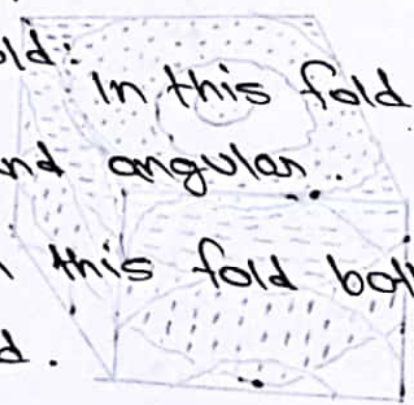 old:
In this fold
nd angular.
this fold bot
d.